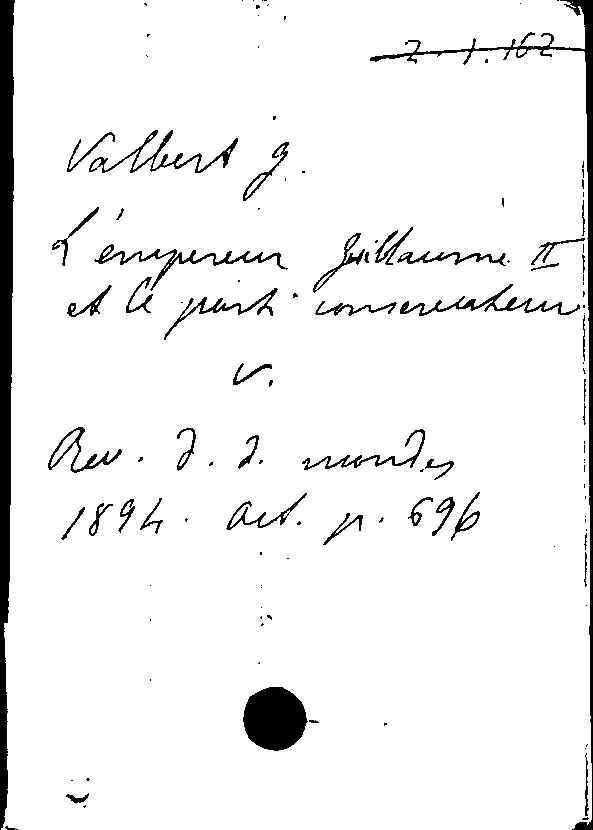 2.1.162
Valbert g.
L'émpereur Guillaume II
et le parti conservateur
v.
Rev. d. d. mondes
1894. Oct. p. 696